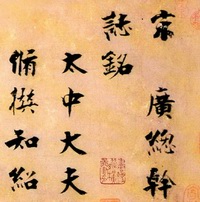 宋 廣總幹
誌銘
太中大夫
脩撰知紹